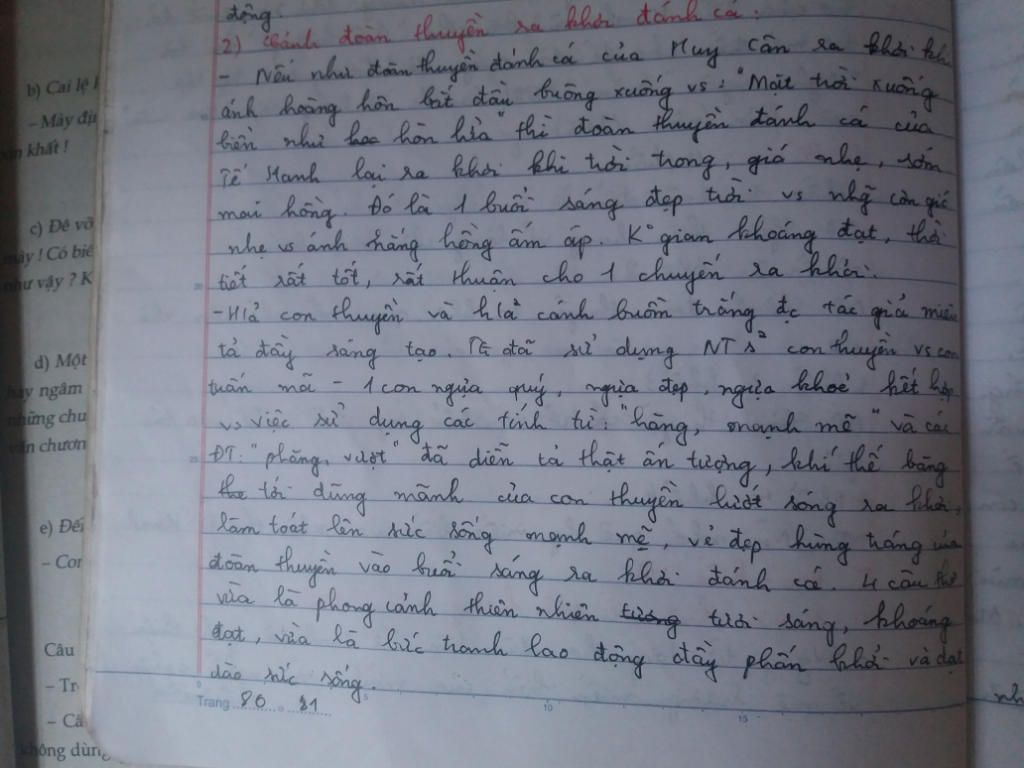 động.
2) Cảnh đoàn thuyền ra khơi đánh cá:
- Nếu như đoàn thuyền đánh cá của Huy Cận ra khơi kh
ánh hoàng hôn bắt đầu buông xuống vs: "Mặt trời xuống
biển như hoa hòn lửa" thì đoàn thuyền đánh cá của
Tế Hanh lại ra khơi khi trời trong, gió nhẹ, sớm
mai hồng. Đó là 1 buổi sáng đẹp trời vs nhg̃ cơn gió
nhẹ vs ánh nắng hồng ấm áp. K° gian khoáng đạt, thời
tiết rất tốt, rất thuận cho 1 chuyến ra khơi.
- H/ả con thuyền và h/ả cánh buồm trắng đc tác giả miêu
tả đầy sáng tạo. TG đã sử dụng NT s² con thuyền vs con
tuấn mã - 1 con ngựa quý, ngựa đẹp, ngựa khoẻ kết hợp
vs việc sử dụng các tính từ: "hăng, mạnh mẽ" và các
ĐT: "phăng, vượt" đã diễn tả thật ấn tượng, khí thế băng
the tới dũng mãnh của con thuyền lướt sóng ra khơi,
làm toát lên sức sống mạnh mẽ, vẻ đẹp hùng tráng của
đoàn thuyền vào buổi sáng ra khơi đánh cá. 4 câu thơ
vừa là phong cảnh thiên nhiên tương tươi sáng, khoáng
đạt, vừa là bức tranh lao động đầy phấn khởi và dạt
dào sức sống.
Trang 80 + 81
5 10 15
b) Cai lệ
- Mày địn
xin khất !
c) Đê vỡ
mày ! Có biế
như vậy ? K
d) Một
hay ngâm
những chu
văn chươn
e) Đế
- Con
Câu
- Tr
- Câ
không dùng
nh